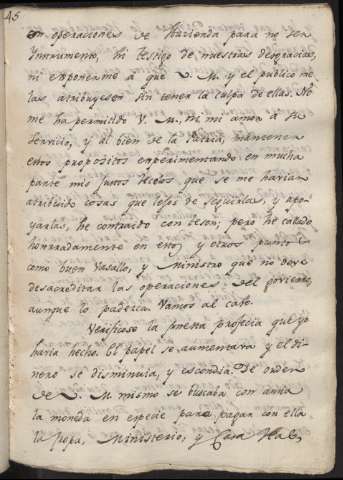 45
en operaciones de Hacienda para no ser
Instrumento, ni testigo de nuestras desgracias,
ni exponerme á que V. M. y el publico me
las atribuyesen sin tener la culpa de ellas. No
me ha permitido V. M. ni mi amor á su
Servicio, y al bien de la Patria, mantener
estos propositos experimentando en mucha
parte mis justos recelos que se me harian
atribuido cosas que lejos de seguirlas, y apo-
yarlas, he contrariado con teson; pero he callado
honrradamente en estos y otros puntos
como buen Vasallo, y Ministro que no deve
desacreditar las operaciones del govierno,
aunque lo padezca. Vamos al caso.
Verificose la funesta profecia que yo
havia hecho. El papel se aumentava y el di-
nero se disminuia, y escondia. De orden
de V. M. mismo se buscaba con ansia
la moneda en especie para pagar con ella
la tropa, Ministerio, y Casa Real,